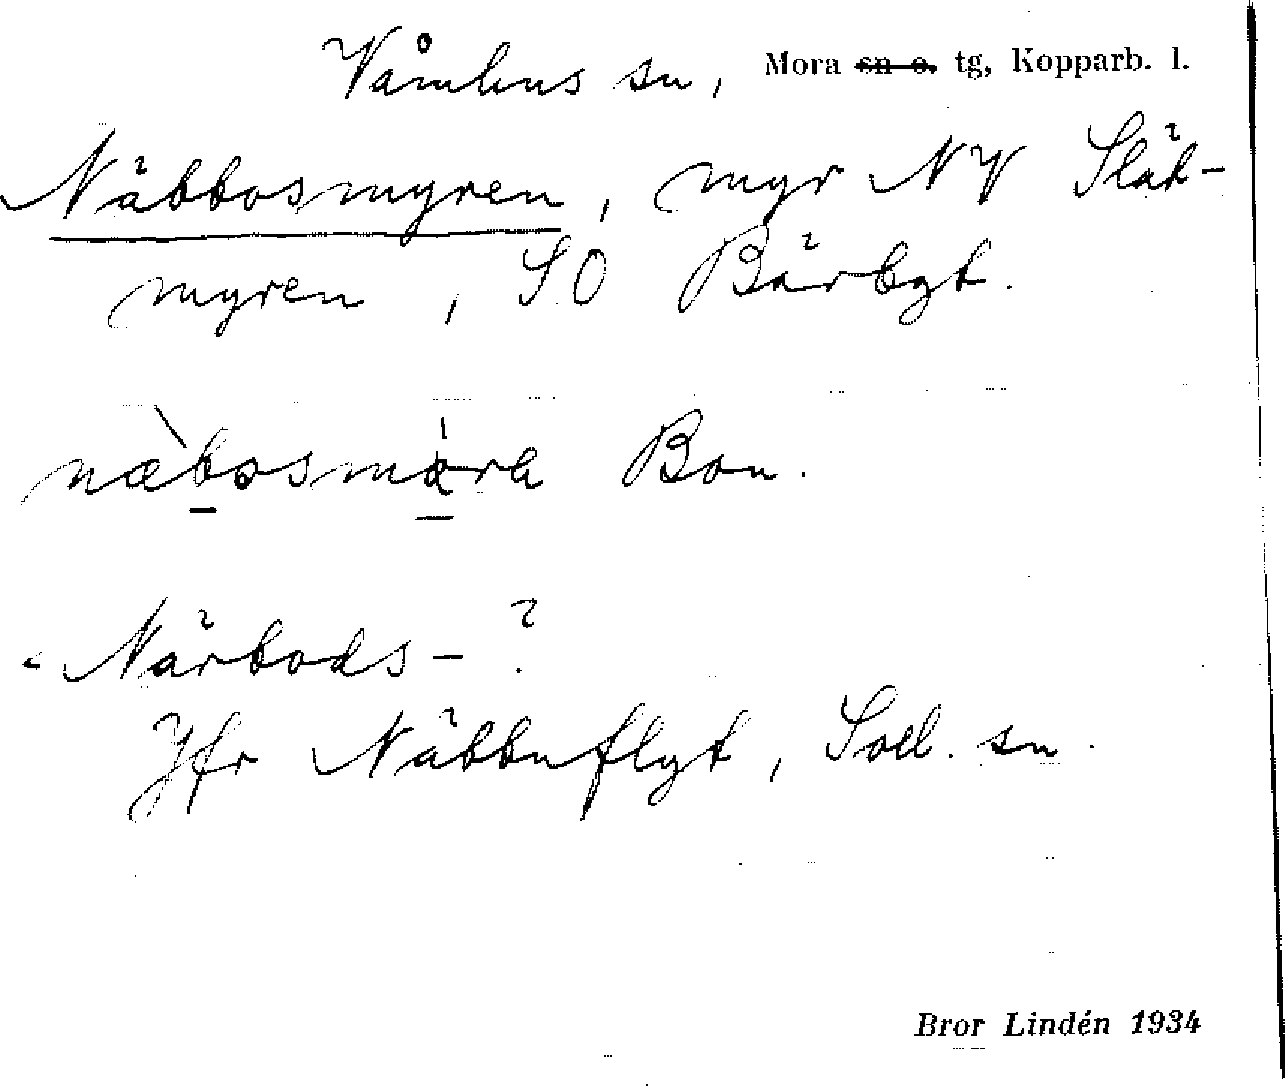 Våmhus sn, Mora sn o. tg, Kopparb. l.
Näbbosmyren, myr NV Slät-
myren, SO Bärbgt.
næbosmỳra Bon.
- Närbods- ?
Jfr Näbbuflyt, Soll. sn.
Bror Lindén 1934